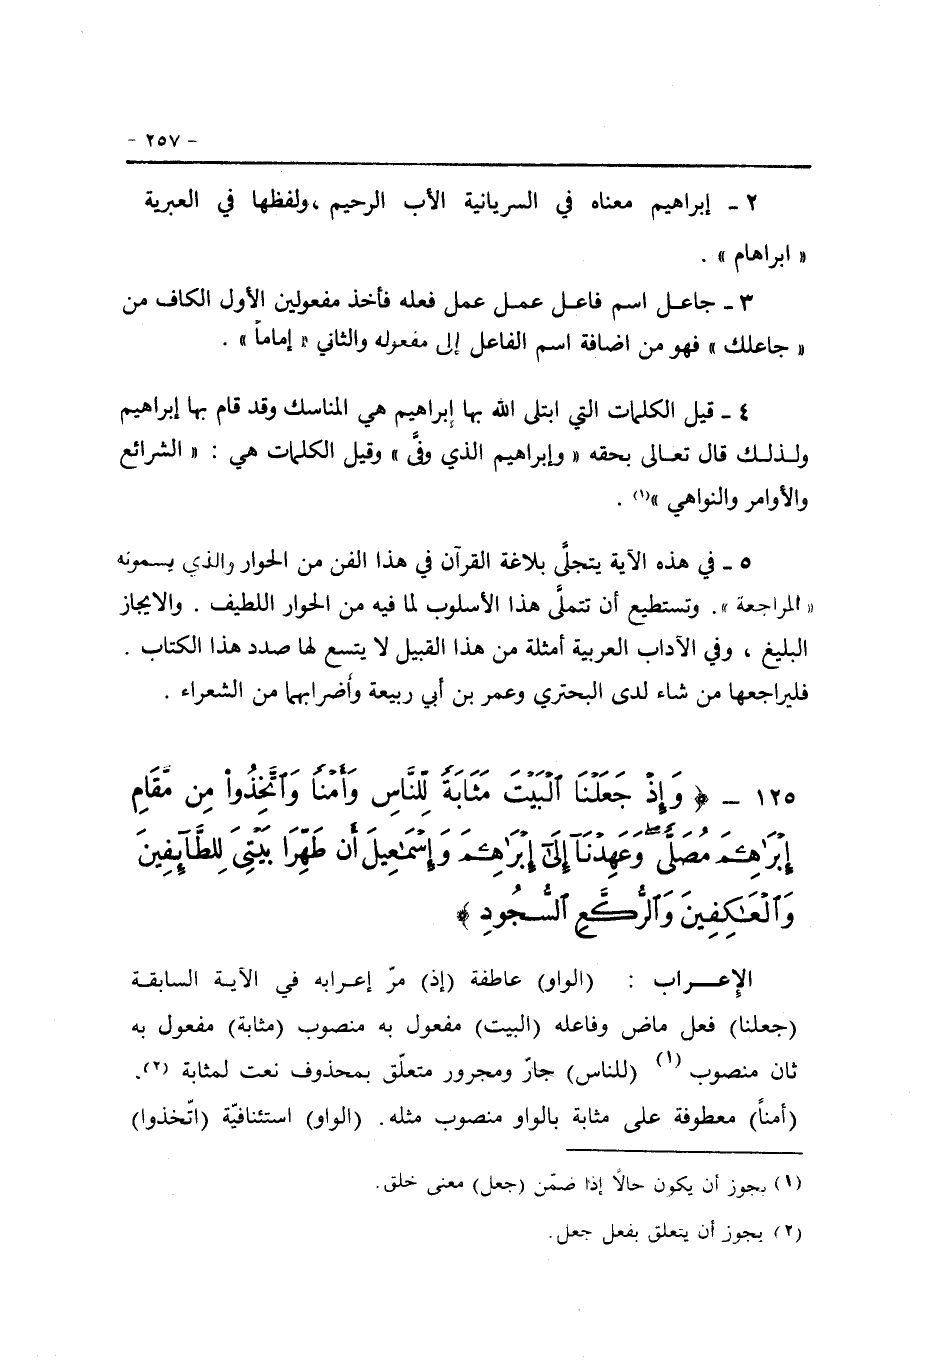 - ٢٥٧ -
٢ ـ إبراهيم معناه في السريانية الأب الرحيم ،ولفظها في العبرية
« ابراهام » .
٣ ـ جاعل اسم فاعل عمل عمل فعله فأخذ مفعولين الأول الكاف من
« جاعلك » فهو من اضافة اسم الفاعل إلى مفعوله والثاني « إماماً » .
٤ ـ قيل الكلمات التي ابتلى الله بها إبراهيم هي المناسك وقد قام بها إبراهيم
ولذلك قال تعالى بحقه « وإبراهيم الذي وفَّى » وقيل الكلمات هي : « الشرائع
والأوامر والنواهي »(١) .
٥ ـ في هذه الآية يتجلَّى بلاغة القرآن في هذا الفن من الحوار والذي يسمونه
« المراجعة ». وتستطيع أن تتملَّى هذا الأسلوب لما فيه من الحوار اللطيف . والايجاز
البليغ ، وفي الآداب العربية أمثلة من هذا القبيل لا يتسع لها صدد هذا الكتاب .
فليراجعها من شاء لدى البحتري وعمر بن أبي ربيعة وأضرابهما من الشعراء .
١٢٥ ـ ﴿ وَإِذْ جَعَلْنَا ٱلْبَيْتَ مَثَابَةً لِّلنَّاسِ وَأَمْنًا وَٱتَّخِذُوا۟ مِن مَّقَامِ
إِبْرَٰهِـۧمَ مُصَلًّى ۖ وَعَهِدْنَآ إِلَىٰٓ إِبْرَٰهِـۧمَ وَإِسْمَٰعِيلَ أَن طَهِّرَا بَيْتِىَ لِلطَّآئِفِينَ
وَٱلْعَٰكِفِينَ وَٱلرُّكَّعِ ٱلسُّجُودِ ﴾
الإعراب : (الواو) عاطفة (إذ) مرّ إعرابه في الآية السابقة
(جعلنا) فعل ماض وفاعله (البيت) مفعول به منصوب (مثابة) مفعول به
ثان منصوب (١) (للناس) جارّ ومجرور متعلّق بمحذوف نعت لمثابة (٢).
(أمناً) معطوفة على مثابة بالواو منصوب مثله. (الواو) استئنافيّة (اتّخذوا)
(١) يجوز أن يكون حالًا إذا ضمّن (جعل) معنى خلق.
(٢) يجوز أن يتعلق بفعل جعل.